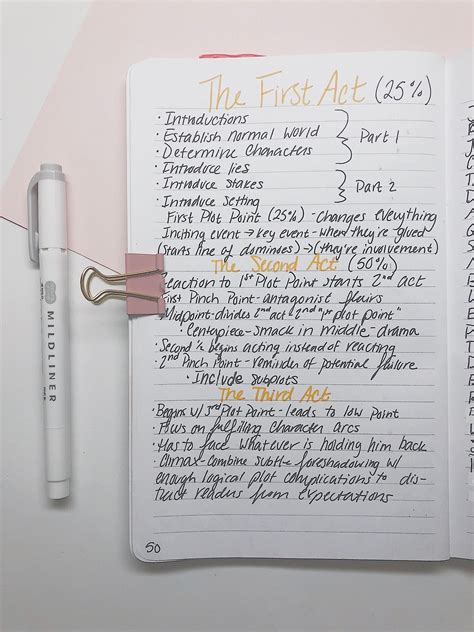 The First Act (25%)
· Introductions
· Establish normal world
· Determine Characters
Part 1
· Introduce lies
· Introduce Stakes
· Introduce Setting
Part 2
First Plot Point (25%) - Changes everything
Inciting event → key event - where they're glued
(Starts line of dominoes) → (they're involvement)
The Second Act (50%)
Reaction to 1st Plot Point starts 2nd act
First Pinch Point - antagonist flairs
Midpoint - divides 2nd act 2nd plot point"
· Centerpiece - smack in middle - drama
· Second ½ begins acting instead of reacting
· 2nd Pinch Point - reminder of potential failure
· Include subplots
The Third Act
· Begins w/ 3rd Plot Point - leads to low point
· Focus on fulfilling character arcs
· Has to face whatever is holding him back
· Climax - combine subtle foreshadowing w/
enough logical plot complications to dis-
tract readers from expectations
50
MILDLINER